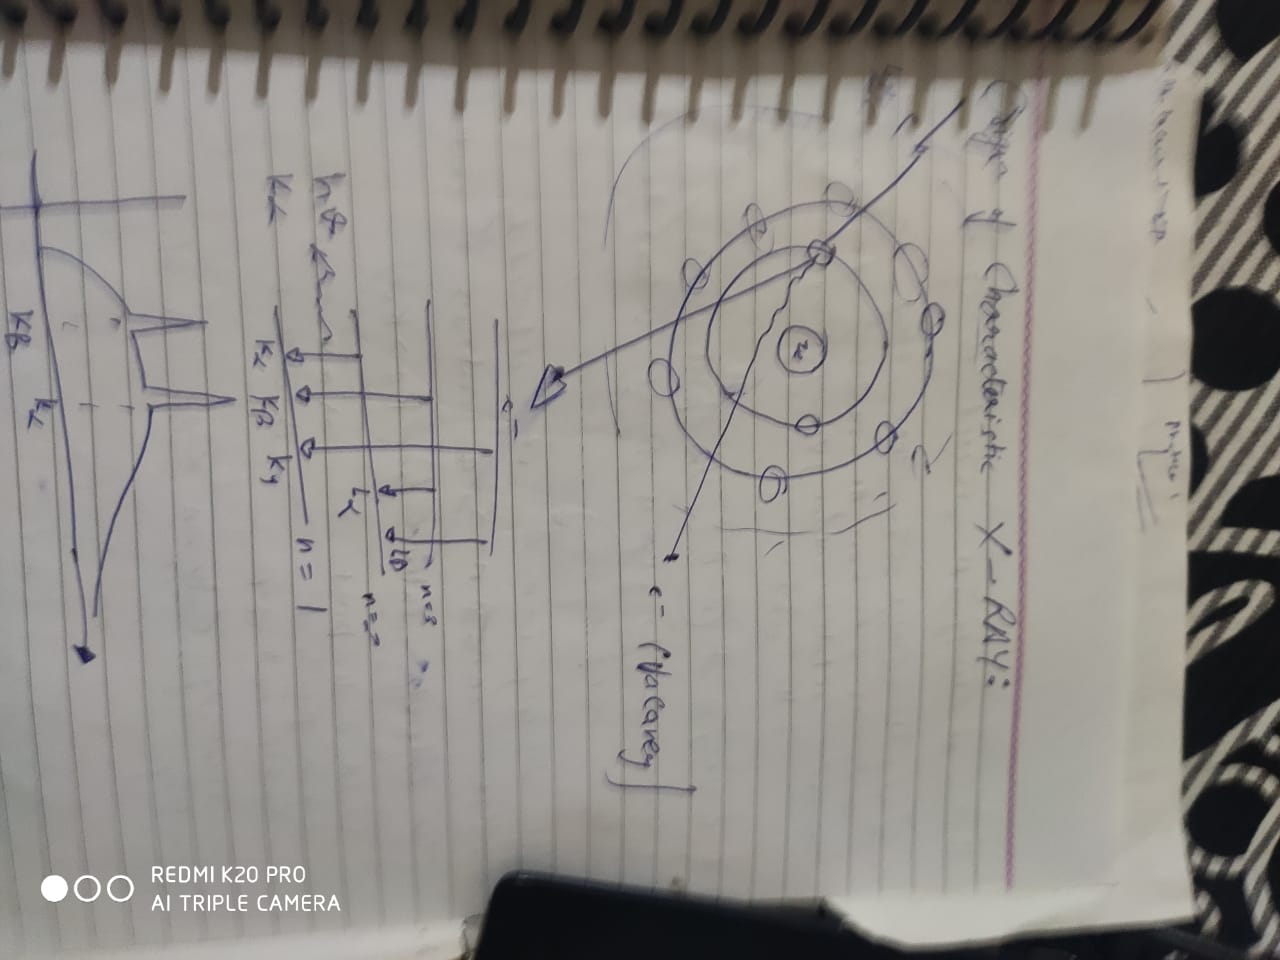 Origin of Characteristic X-RAY:
e- (Vacancy]
e-
n=3
Lβ
n=2
Lα
hν
n = 1
Kα
Kα Kβ Kγ
Kβ Kα
REDMI K20 PRO
AI TRIPLE CAMERA